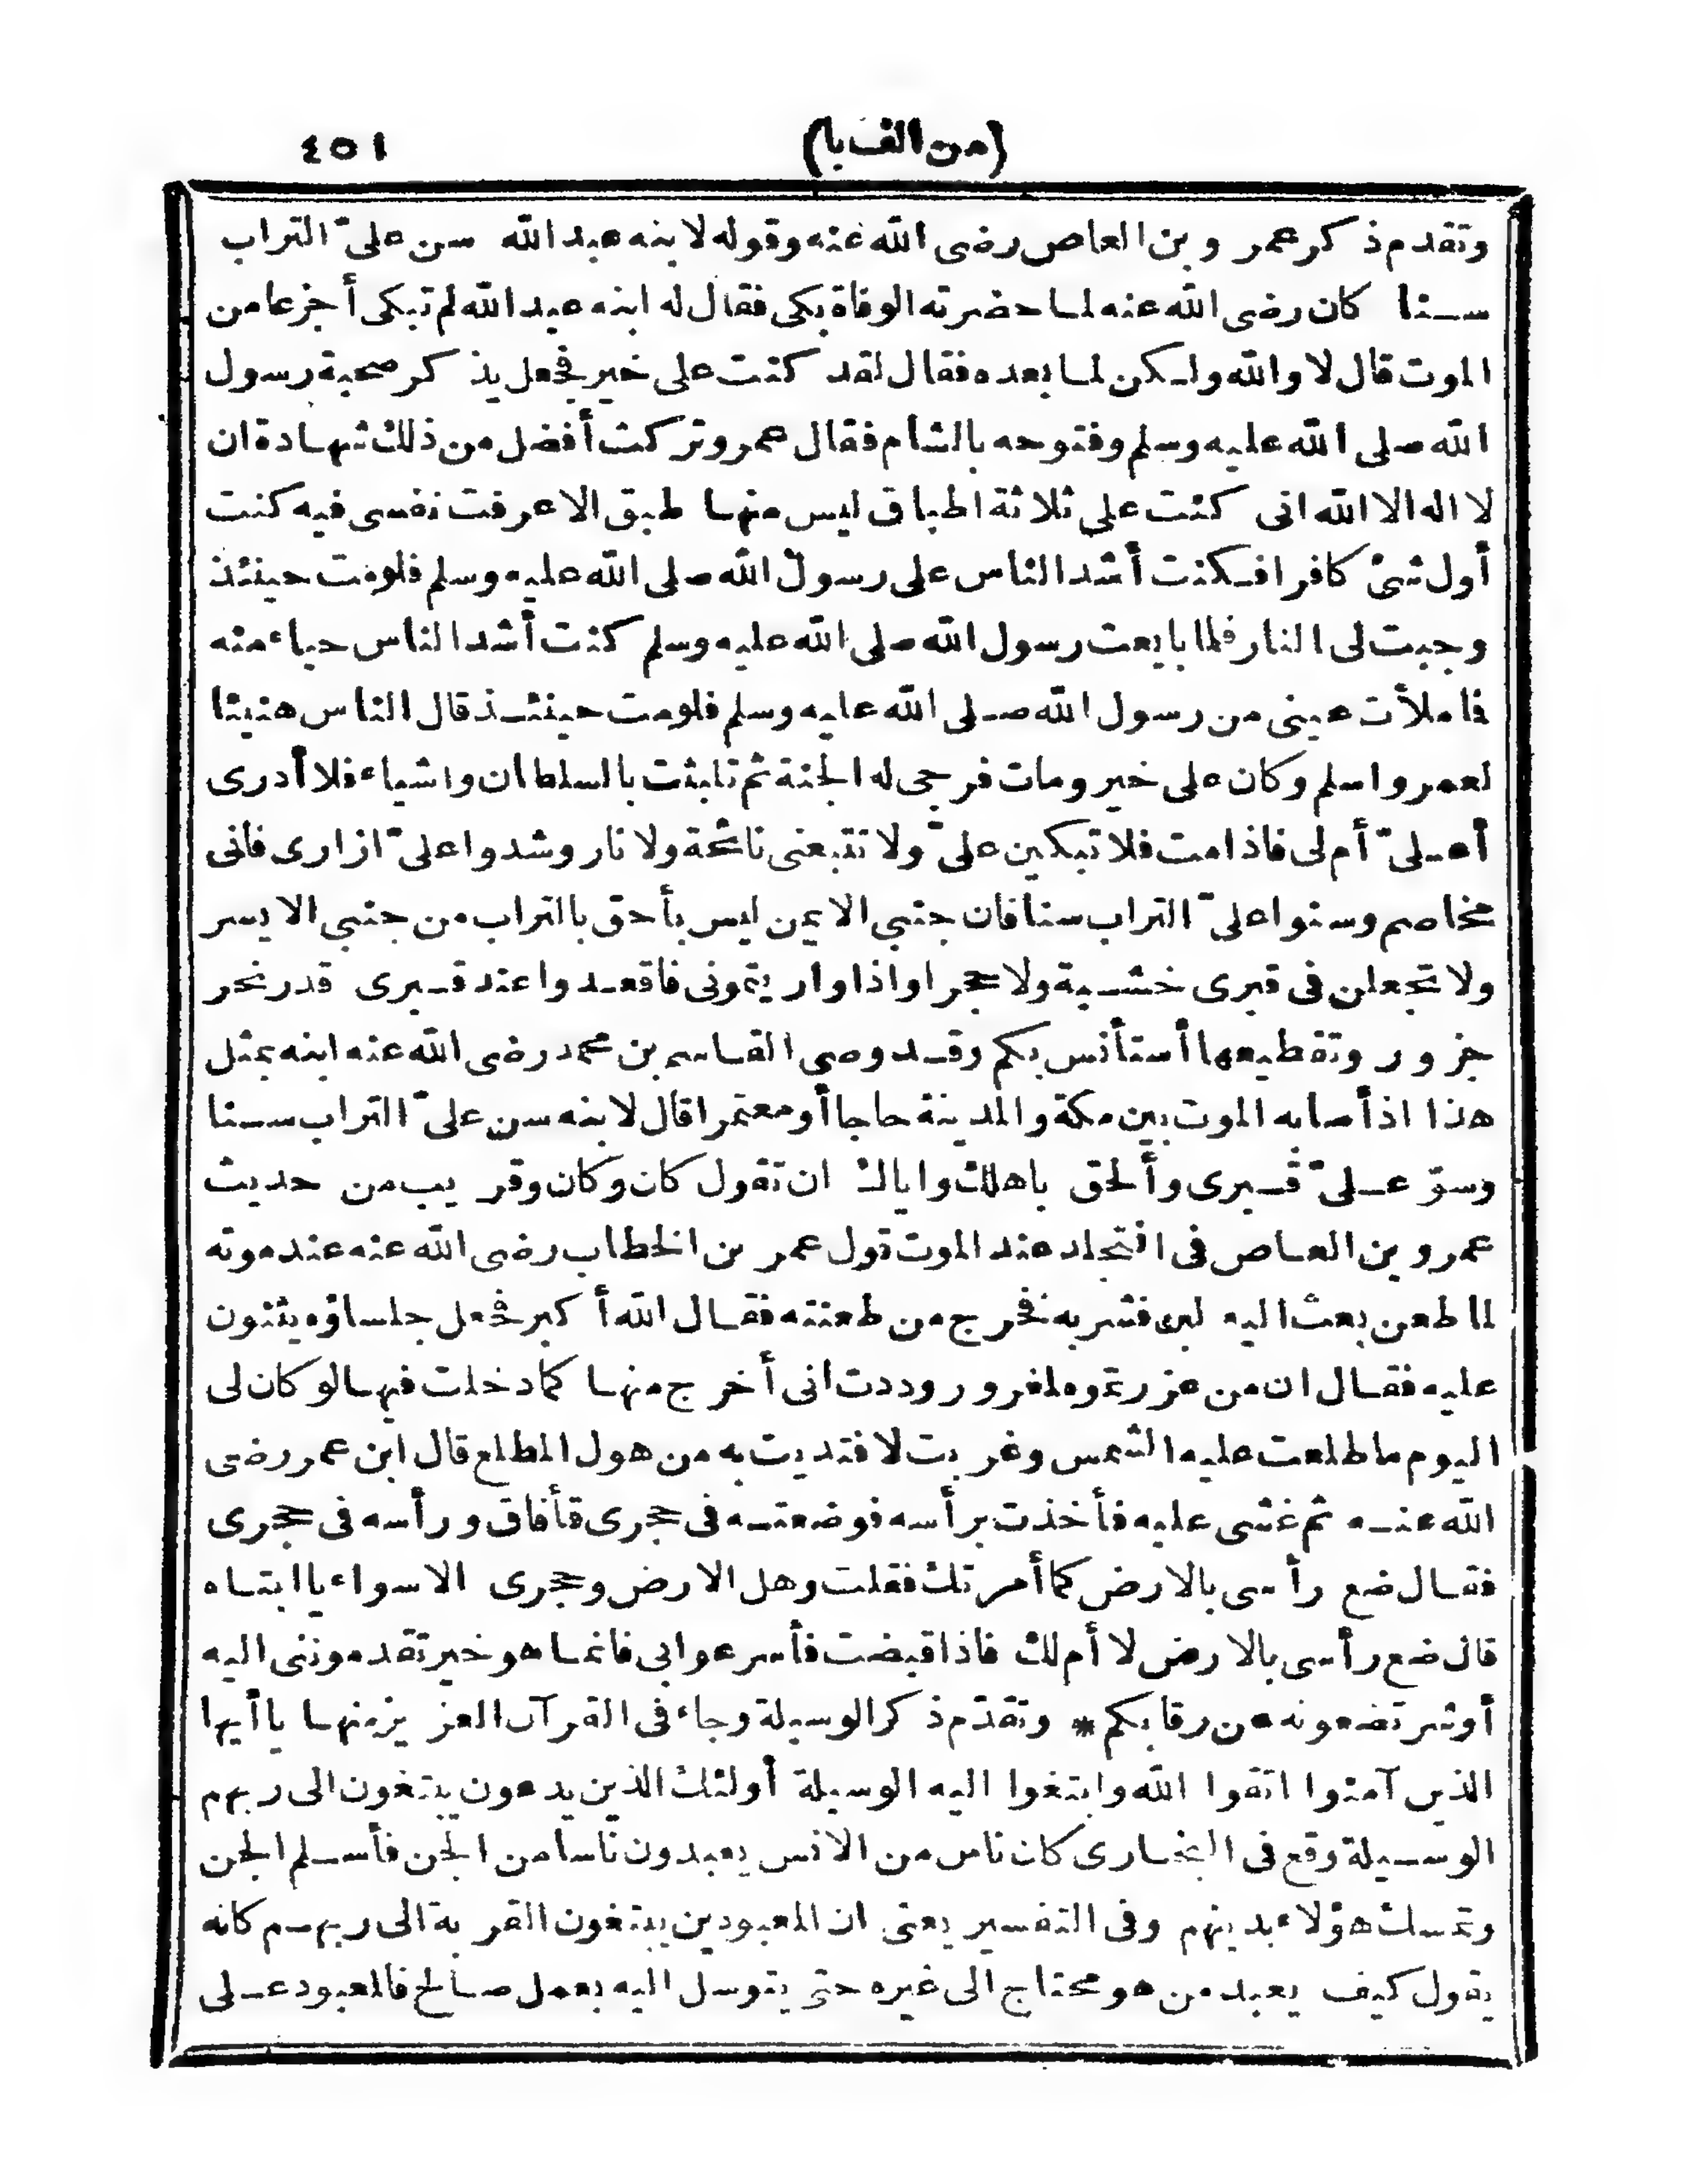 (من الف با) ٤٥١
وتقدم ذكر عمرو بن العاص رضى الله عنه وقوله لابنه عبد الله سن علىّ التراب
سـنا كان رضى الله عنه لما حضرته الوفاة بكى فقال له ابنه عبد الله لم تبكى أجزعا من
الموت قال لا والله ولكن لما بعده فقال لقد كنت على خير فجعل يذكر صحبة رسول
الله صلى الله عليه وسلم وفتوحه بالشأم فقال عمرو تركت أفضل من ذلك شهادة ان
لا اله الا الله انى كنت على ثلاثة اطباق ليس منها طبق الا عرفت نفسى فيه كنت
أول شئ كافرا فكنت أشد الناس على رسول الله صلى الله عليه وسلم فلو مت حينئذ
وجبت لى النار فلما بايعت رسول الله صلى الله عليه وسلم كنت أشد الناس حياء منه
فا ملأت عينى من رسول الله صلى الله عليه وسلم فلو مت حينئذ قال الناس هنيئا
لعمرو اسلم وكان على خير ومات فرجى له الجنة ثم تلبثت بالسلطان واشياء فلا أدرى
أعلىّ أم لى فاذا مت فلا تبكين علىّ ولا تتبعنى نائحة ولا نار وشدوا علىّ ازارى فانى
مخاصم وسنوا علىّ التراب سنا فان جنبى الايمن ليس بأحق بالتراب من جنبى الايسر
ولا تجعلن فى قبرى خشبة ولا حجرا واذا واريتمونى فاقعدوا عند قبرى قدر نحر
جزور وتقطيعها أستأنس بكم وقد وصى القاسم بن محمد رضى الله عنه ابنه بمثل
هذا اذ أصابه الموت بين مكة والمدينة حاجا أو معتمرا قال لابنه سن علىّ التراب سـنا
وسوّ علىّ قبرى وألحق باهلك واياك ان تقول كان وكان وقريب من حديث
عمرو بن العاص فى افتجاد عند الموت قول عمر بن الخطاب رضى الله عنه عند موته
لما طعن بعث اليه لبن فشربه فخرج من طعنته فقال الله أكبر فجعل جلساؤه يثنون
عليه فقال ان من غررتموه لمغرور وددت انى أخرج منها كما دخلت فيها لو كان لى
اليوم ما طلعت عليه الشمس وغربت لافتديت به من هول المطلع قال ابن عمر رضى
الله عنـه ثم غشى عليه فأخذت برأسه فوضعته فى حجرى فأفاق ورأسه فى حجرى
فقال ضع رأسى بالارض كما أمرتك فقلت وهل الارض وحجرى الا سواء يا ابتاه
قال ضع رأسى بالارض لا أم لك فاذا قبضت فأسرعوا بى فانما هو خير تقدموننى اليه
أو شر تضعونه عن رقابكم * وتقدّم ذكر الوسيلة وجاء فى القرآن العزيز منها يا أيها
الذين آمنوا اتقوا الله وابتغوا اليه الوسيلة أولئك الذين يدعون يبتغون الى ربهم
الوسـيلة وقع فى البخارى كان ناس من الانس يعبدون ناسا من الجن فأسلم الجن
وتمسك هؤلاء بدينهم وفى التفسير يعنى ان المعبودين يبتغون القربة الى ربهم كانه
يقول كيف يعبد من هو محتاج الى غيره حتى يتوسل اليه بعمل صالح فالمعبود عـلى